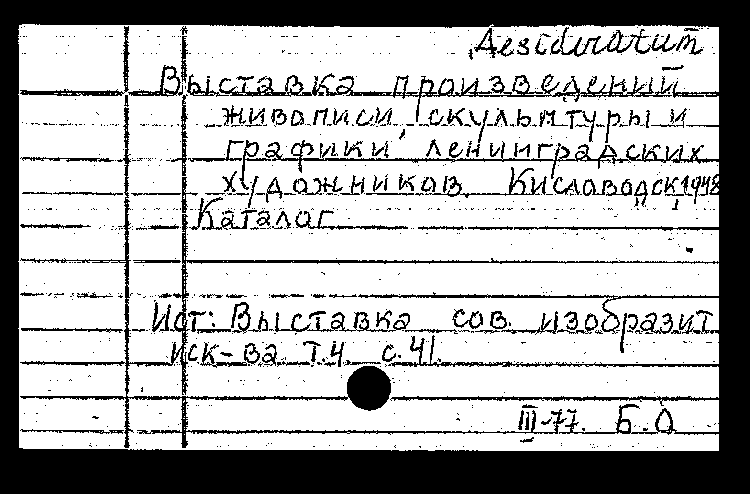 Desideratum
Выставка произведений
живописи, скульптуры и
графики ленинградских
художников. Кисловодск, 1948
Каталог
Ист: Выставка сов. изобразит
иск-ва Т.4. с.41.
III-77. Б.О